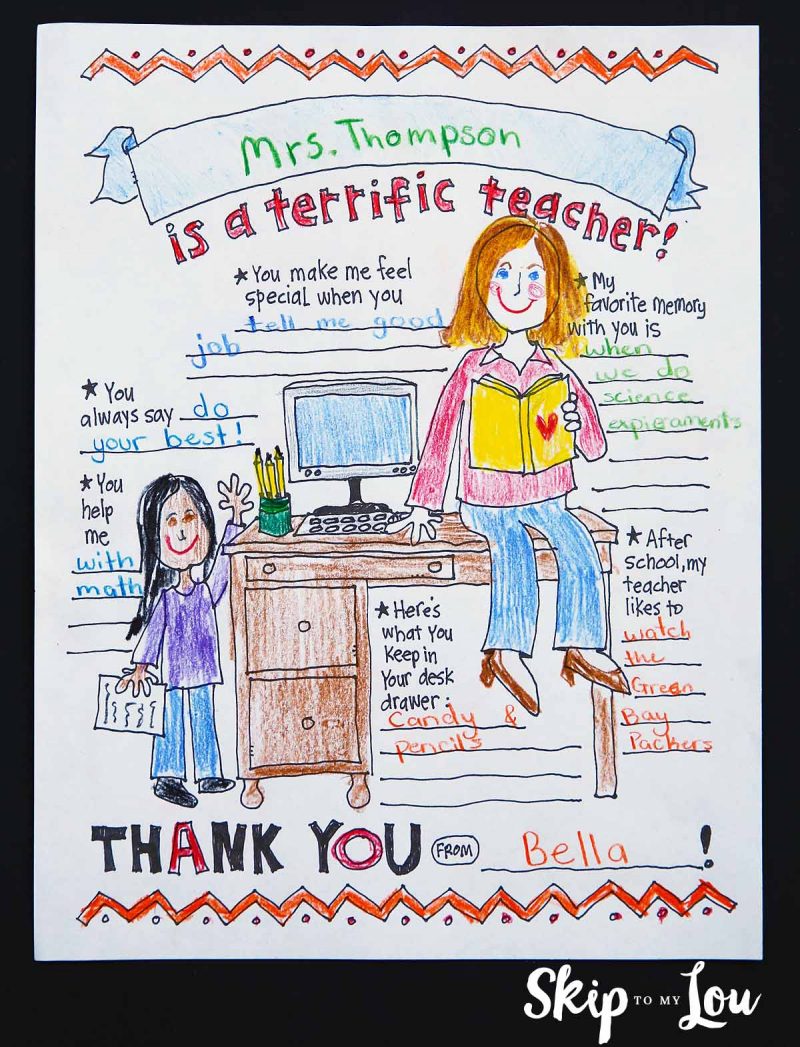 Mrs. Thompson
is a terrific teacher!
★ You make me feel
special when you
tell me good
job
★ My
favorite memory
with you is
when
we do
science
expieraments
★ You
always say do
your best!
★ You
help
me
with
math
★ After
school, my
teacher
likes to
watch
the
Green
Bay
Packers
★ Here's
what you
keep in
your desk
drawer:
Candy &
pencils
THANK YOU FROM Bella!
Skip TO MY Lou